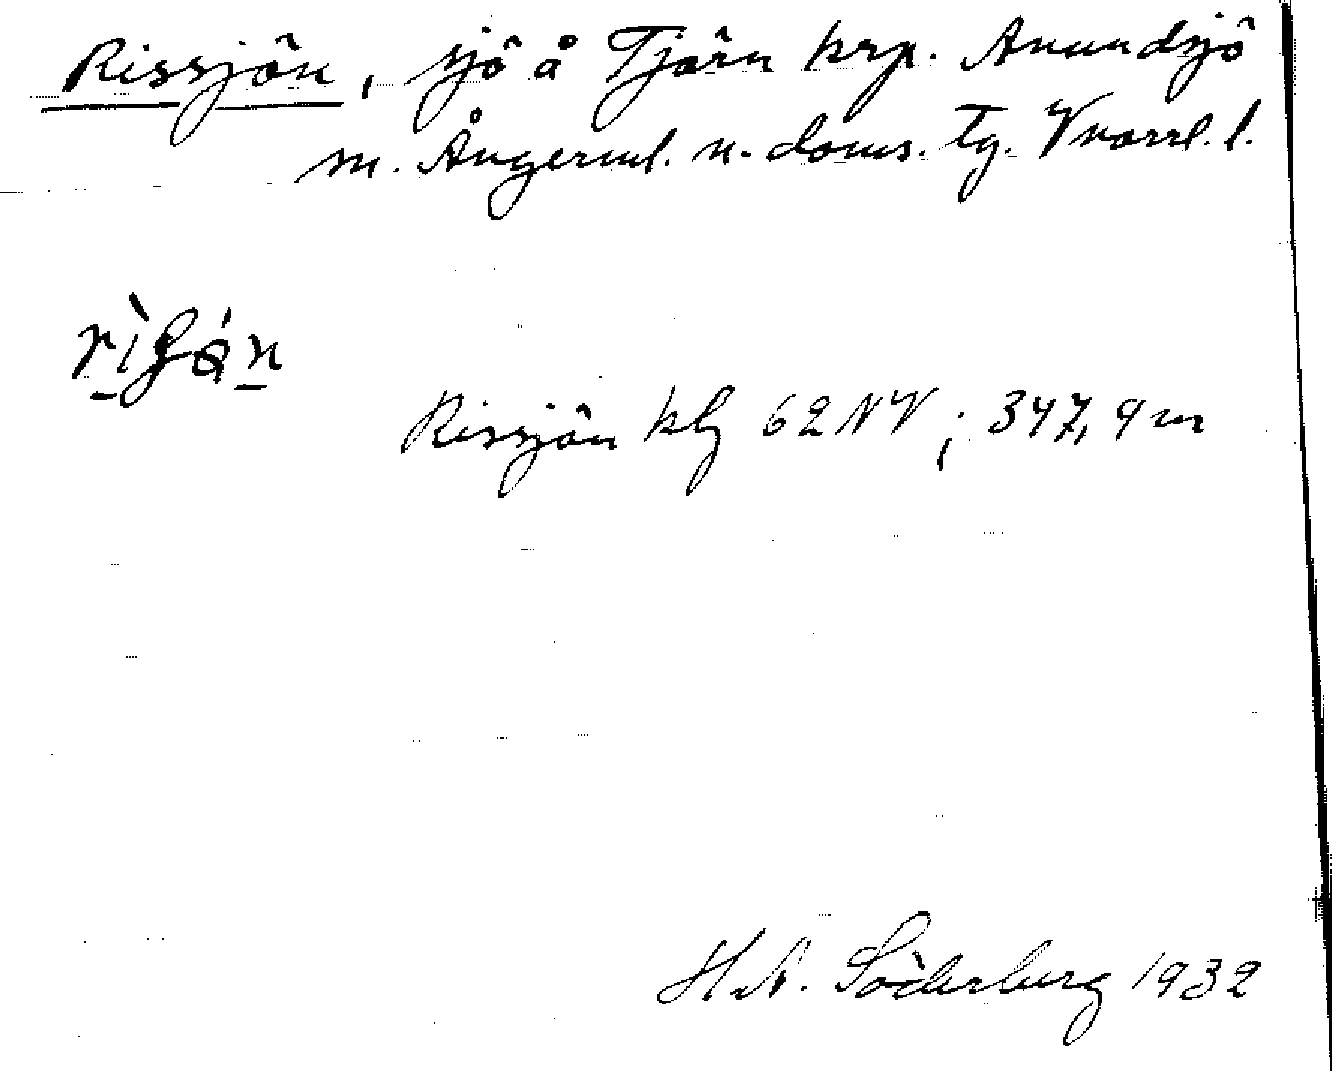 Rissjön, sjö å Tjärn krp. Anundsjö
sn. Ångerml. n. doms. tg. Vnorrl. l.
Rissjön kbl 62 NV; 347,9 m
H.N. Söderberg 1932